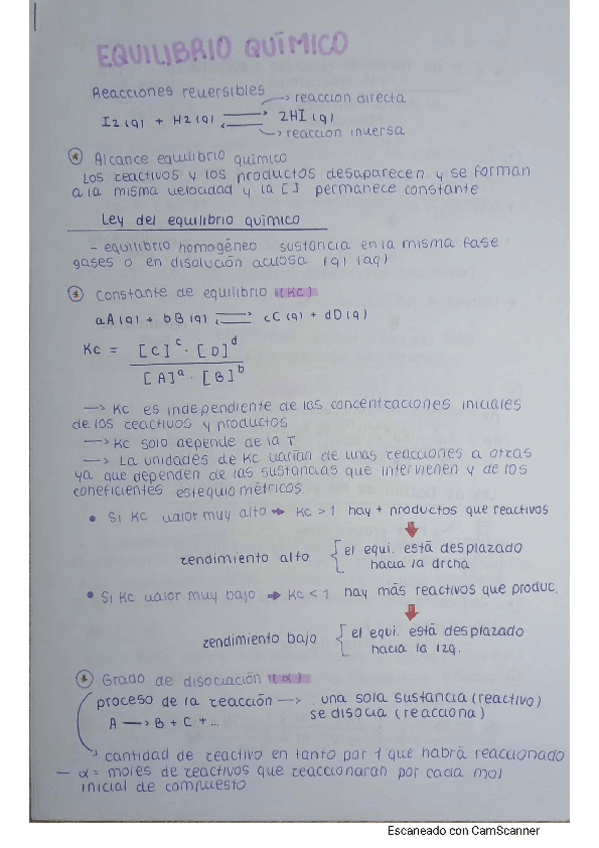 EQUILIBRIO QUÍMICO
Reacciones reversibles
→ reaccion directa
I2 (g) + H2 (g) ⇌ 2HI (g)
→ reaccion inversa
* Alcance equilibrio químico
Los reactivos y los productos desaparecen y se forman
a la misma velocidad y la [] permanece constante
Ley del equilibrio químico
- equilibrio homogéneo sustancia en la misma fase
gases o en disolución acuosa (g) (aq)
* Constante de equilibrio (Kc)
aA (g) + bB (g) ⇌ cC (g) + dD (g)
Kc = [C]^c · [D]^d
[A]^a · [B]^b
→ Kc es independiente de las concentraciones iniciales
de los reactivos y productos
→ Kc solo depende de la T
→ La unidades de Kc varían de unas reacciones a otras
ya que dependen de las sustancias que intervienen y de los
coneficientes estequiométricos.
• Si Kc valor muy alto → Kc > 1 hay + productos que reactivos
rendimiento alto { el equi. está desplazado
hacia la drcha.
• Si Kc valor muy bajo → Kc < 1 hay más reactivos que produc.
rendimiento bajo { el equi. está desplazado
hacia la izq.
* Grado de disociación (α)
proceso de la reacción → una sola sustancia (reactivo)
se disocia (reacciona)
A → B + C + ...
cantidad de reactivo en tanto por 1 que habrá reaccionado
- α = moles de reactivos que reaccionaran por cada mol
inicial de compuesto
Escaneado con CamScanner